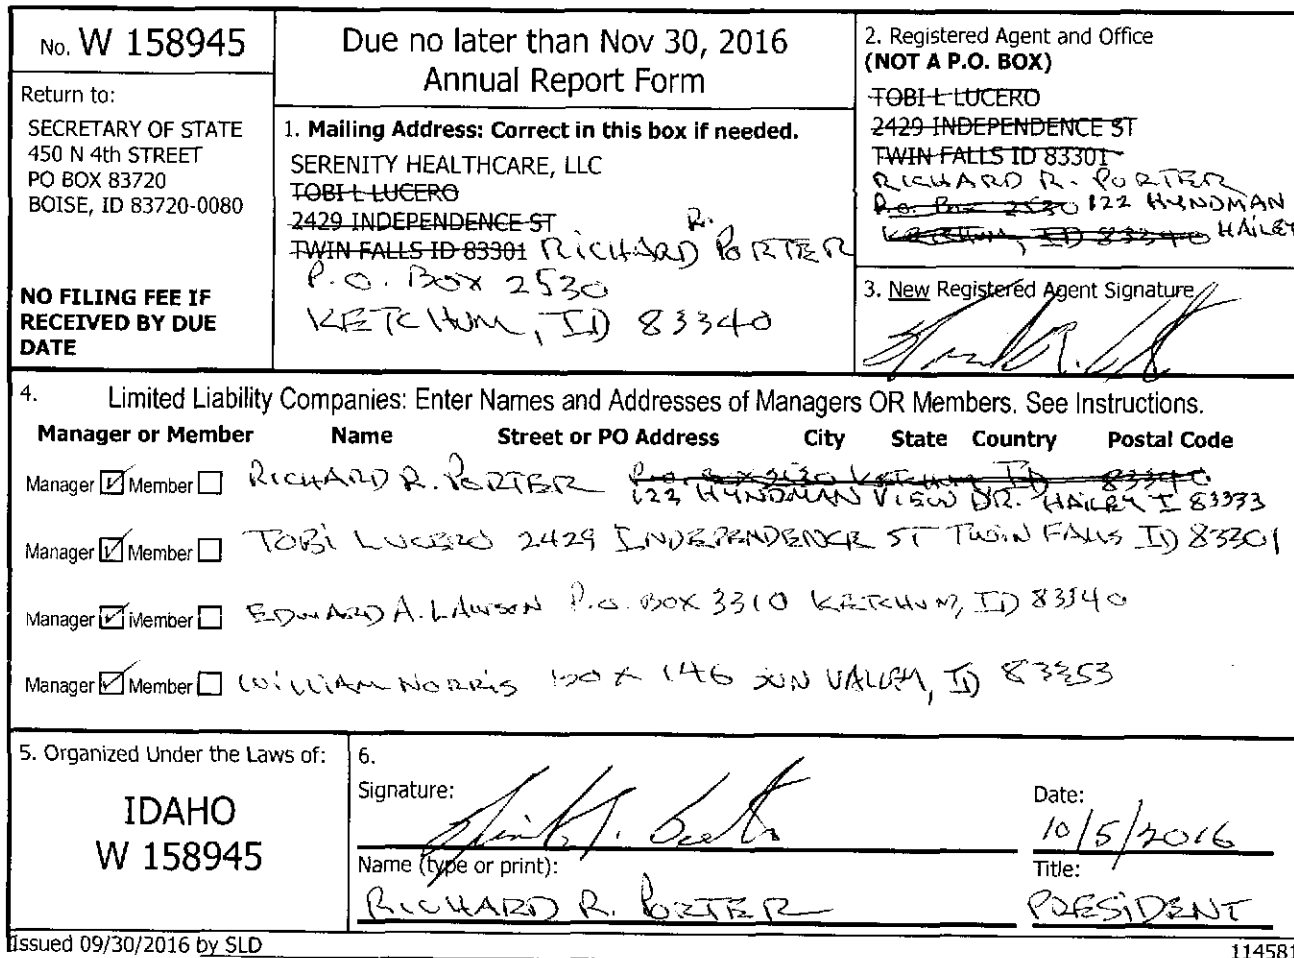 No. W 158945
Return to:
SECRETARY OF STATE
450 N 4th STREET
PO BOX 83720
BOISE, ID 83720-0080
NO FILING FEE IF
RECEIVED BY DUE
DATE
Due no later than Nov 30, 2016
Annual Report Form
1. Mailing Address: Correct in this box if needed.
SERENITY HEALTHCARE, LLC
TOBI L LUCERO
2429 INDEPENDENCE ST
TWIN FALLS ID 83301 RICHARD R. PORTER
P.O. BOX 2530
KETCHUM, ID 83340
2. Registered Agent and Office
(NOT A P.O. BOX)
TOBI L LUCERO
2429 INDEPENDENCE ST
TWIN FALLS ID 83301
RICHARD R. PORTER
P.O. Box 2530 122 HYNDMAN
KETCHUM, ID 83340 HAILEY
3. New Registered Agent Signature
4. Limited Liability Companies: Enter Names and Addresses of Managers OR Members. See Instructions.
Manager or Member Name Street or PO Address City State Country Postal Code
Manager Member RICHARD R. PORTER P.O. BOX 2530 KETCHUM ID 83340
122 HYNDMAN VIEW DR. HAILEY I 83333
Manager Member TOBI LUCERO 2429 INDEPENDENCE ST TWIN FALLS ID 83301
Manager Member EDWARD A. LAWSON P.O. BOX 3310 KETCHUM, ID 83340
Manager Member WILLIAM NORRIS BOX 146 SUN VALLEY, ID 83353
5. Organized Under the Laws of:
IDAHO
W 158945
6.
Signature:
Date:
10/5/2016
Name (type or print):
RICHARD R. PORTER
Title:
PRESIDENT
Issued 09/30/2016 by SLD
114581